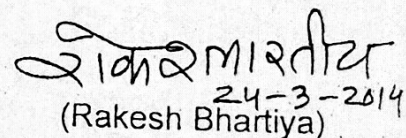 राकेश भारतीय
24-3-2014
(Rakesh Bhartiya)